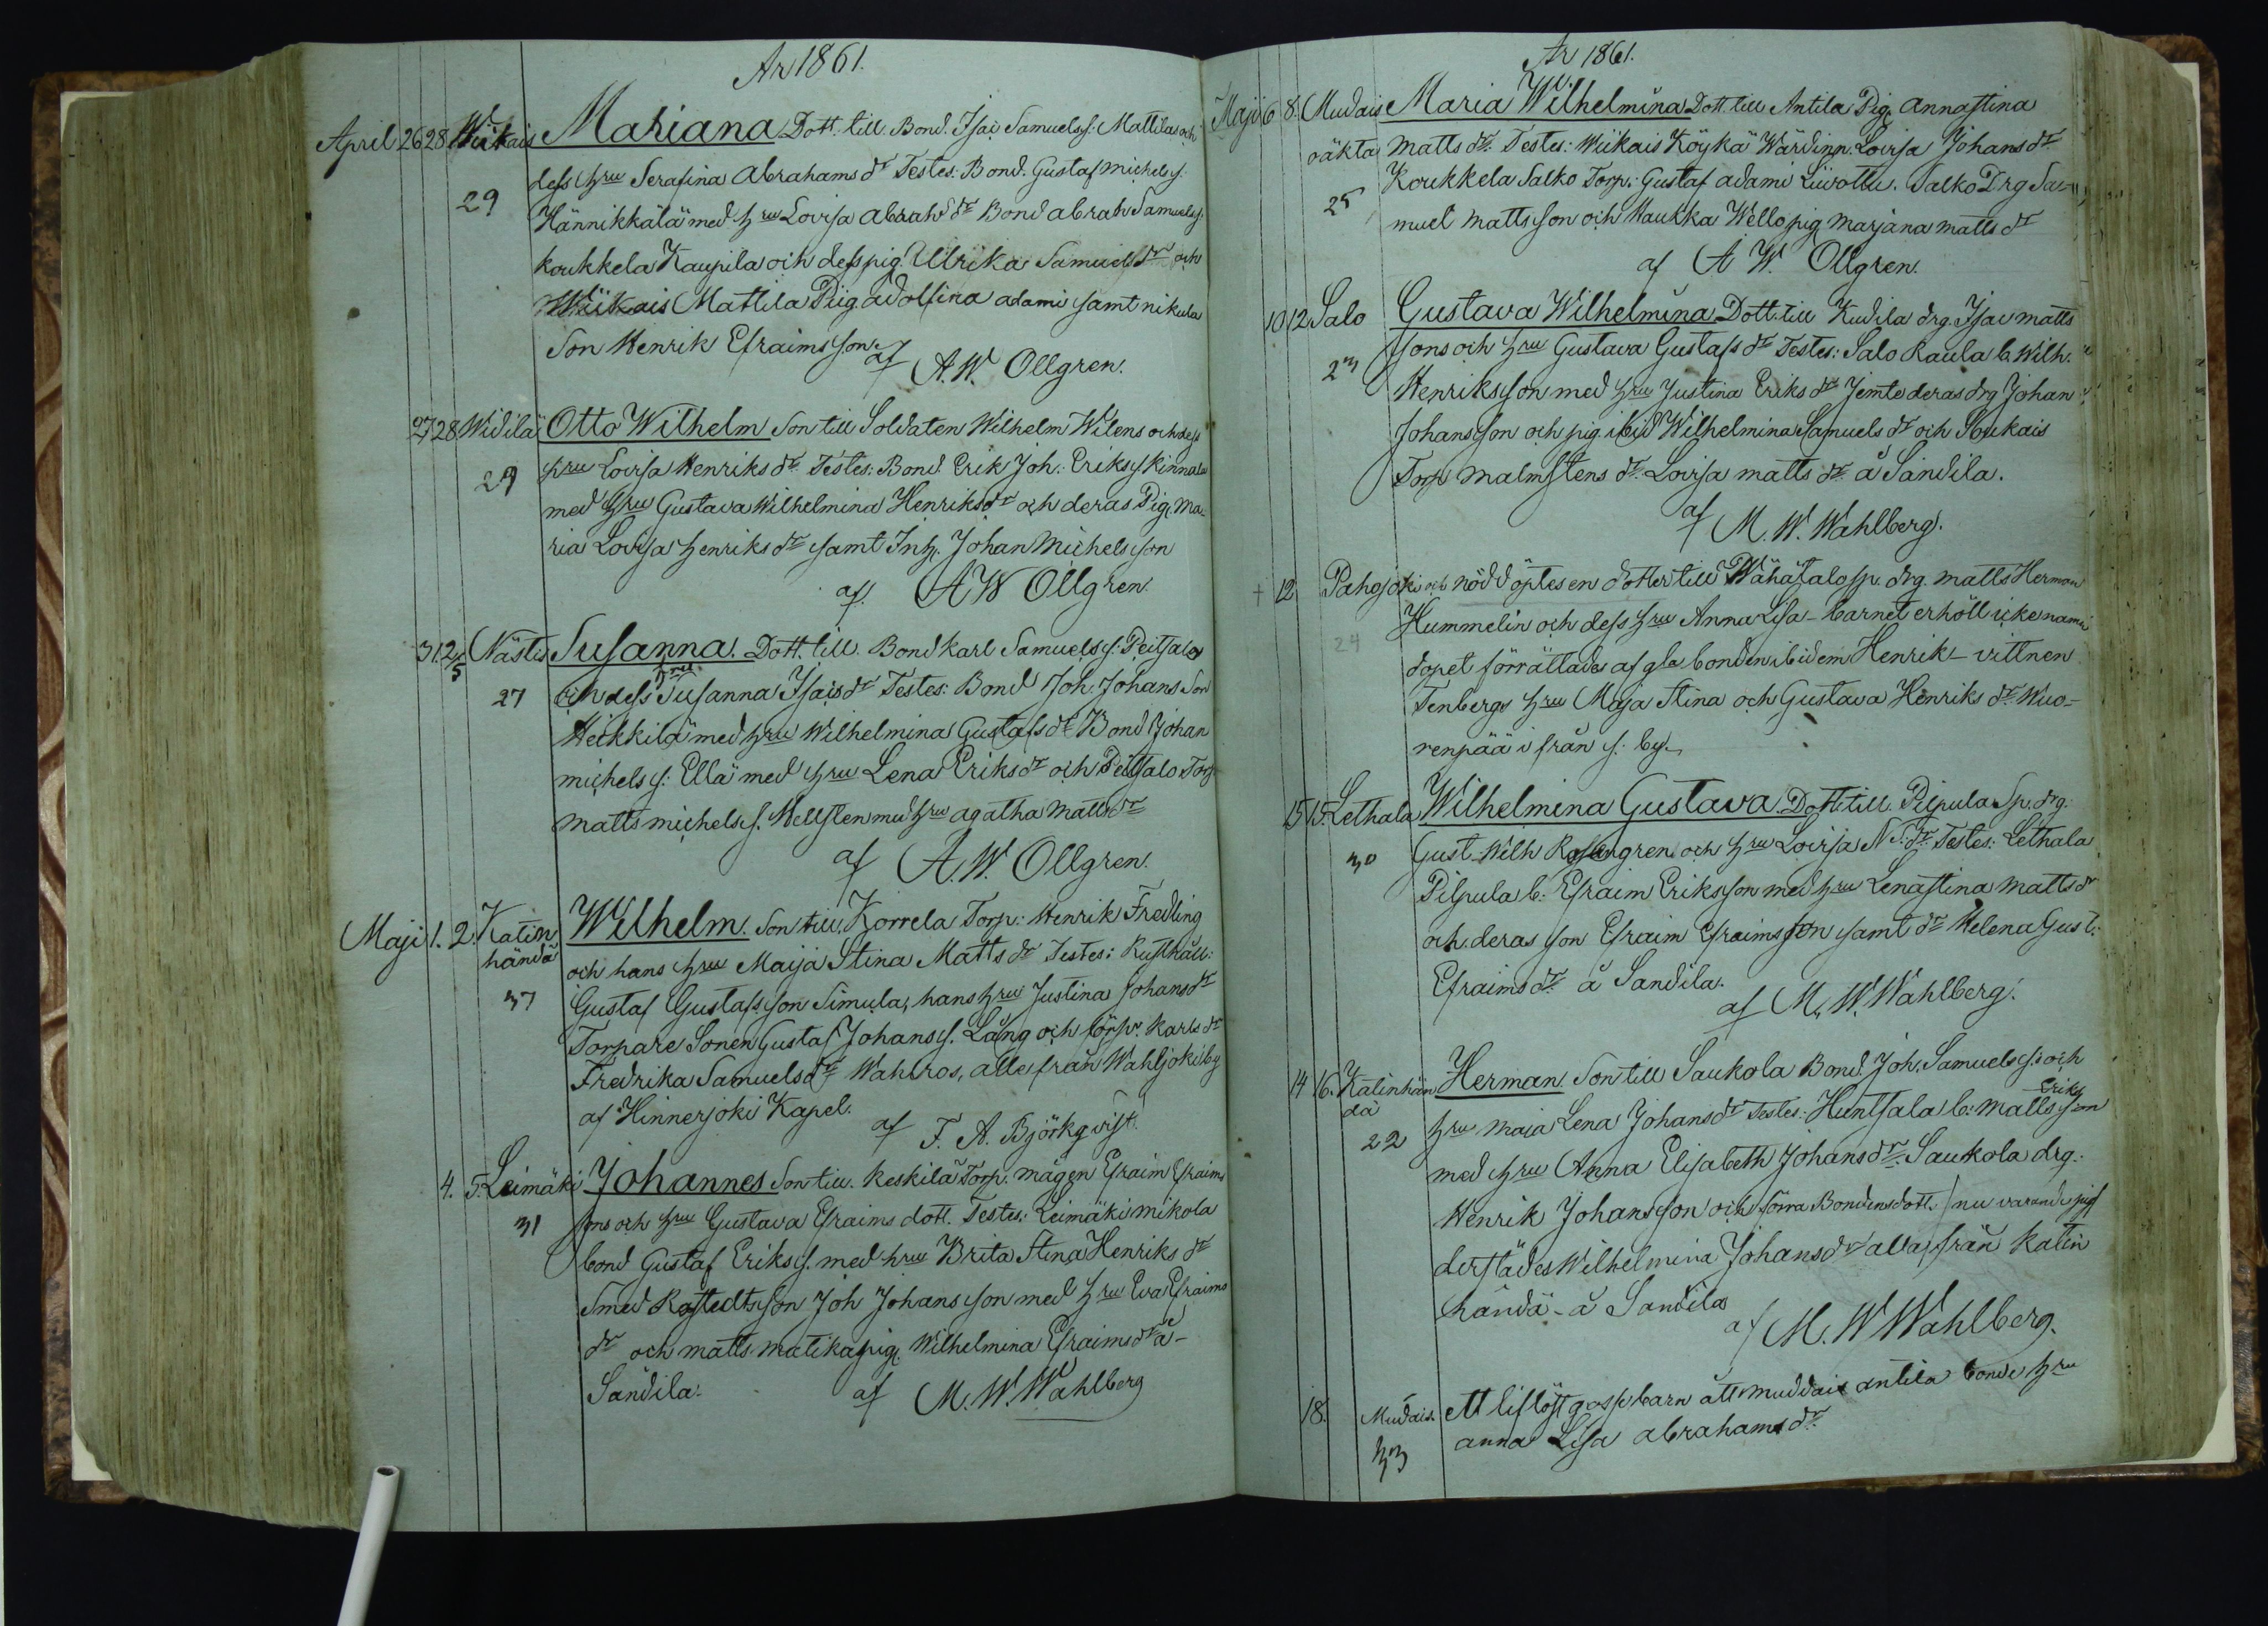 Ar 1861.
April 26 28 Wiikais Mariana Dott. till Bond. Isai Samuelss: Mattilas och
dess hru Serafina Abrahams dr Testes: Bond. Gustaf Michels s:
29 Hännikkälä med hru Lovisa Abrah dr Bond Abrah Samuels s:
Koukkela Kaupila och dess pig. Ulrika Samuels dr och
Wiikais Mattila Piig Adolfina Adami samt nikula
Son Henrik Efraimsson.
af A. W. Ollgren.
27 28 Widilä Otto Wilhelm Son till Soldaten Wilhelm Wilens och dess
hru Lovisa Henriks dr Testes: Bond. Erik Joh: Eriks s Kinnala
29 med hru Gustava Wilhelmina Henriks dr och deras Pig. Ma-
ria Lovisa Henriks dr samt Inh. Johan Michelsson
af. A W Ollgren.
31. 2/5 Nästis Susanna. Dott. till. Bond Karl Samuels s: Peitsalos
och dess hru Susanna Isais dr Testes: Bond Joh. Johans Son
27 Heikkilä med hru Wilhelmina Gustafs dr Bond Johan
michels s: Ella med hru Lena Eriks dr och Peitsalo Torp
matts michels s. Hellsten med hru agatha matts dr
af A. W. Ollgren.
Maji 1. 2. Katin Wilhelm. Son till Korrela Torp: Henrik Fredling
händä och hans hru Maija Stina Matts dr Testes: Rusthåll:
37 Gustaf Gustafsson Simula, hans hru Justina Johans dr
Torpare Sonen Gustaf Johans s. Lång och torp. Karls dr
Fredrika Samuels dr Wahlros, alla från Wahljoki by
af Hinnerjoki Kapel.
af F. A. Björkqvist.
4. 5. Leimäki Johannes Son till. Keskilä Torp. mågen Efraim Efraims
31 sons och hru Gustava Efraims dott. Testes: Leimäki mikola
bond Gustaf Eriks s. med hru Brita Stina Henriks dr
Smed Rostedts son Joh Johansson med hru Eva Efraims
dr och matts matika pig. Wilhelmina Efraims dr å-
Sandila.
af M. W. Wahlberg
Ar 1861.
Maji 6 8. Mudais Maria Wilhelmina Dott. till Antila Pig. Annastina
oäkta Matts dr. Testes: Wiikais Köykä Wärdinn. Lovisa Johans dr
25 Koukkela Salko Torp: Gustaf adami Liivollu. Salko Drg Sa-
muel Mattsson och Haukka Wello pig Marjana matts dr
af A W. Ollgren.
10 12 Salo Gustava Wilhelmina Dott. till Kudila drg. Isac matts
23 sons och hru Gustava Gustafs dr Testes: Salo Raula b. Wilh.
Henriksson med hru Justina Eriks dr Jemte deras drg Johan
Johansson och pig. ibid Wilhelmina Samuels dr och Soukais
Torp Malmstens dr Lovisa matts dr å Sandila.
af M. W. Wahlberg.
+ 12 Pahojoki nöddöptes en dotter till Wähätalo sp. drg. Matts Herman
24 Hummelin och dess hru Anna Lisa - barnet erhöll icke namn
dopet förrättades af gla bonden ibidem Henrik - vittnen
Tenbergs hru Maja Stina och Gustava Henriks dr Wuo-
renpää ifrån s. by.
15 15. Lethala Wilhelmina Gustava. Dott. till. Pilpula Sp. drg.
30 Gust. Wilh Rosengren och hru Lovisa N. dr. Testes: Lethala
Pilpula b: Efraim Eriksson med hru Lenastina matts dr
och deras son Efraim Efraimsson samt dr Helena Gust:
Efraims dr å Sandila.
af M. W. Wahlberg.
14 16. Katinhän Herman. Son till Saukola Bond. Joh. Samuels s: och
dä hru Maia Lena Johans dr Testes: Huntsala b: Matts Eriksson
22 med hru Anna Elisabeth Johans dr. Saukola drg.
Henrik Johansson och förra Bondens dott. nu varande pig
derstädes Wilhelmina Johans dr alla från Katin
händä - å Sandila
af M. W Wahlberg.
18. Mudais. ett liflöst gossebarn ått muddais antila bonde hru
33 anna Lisa abrahams dr.